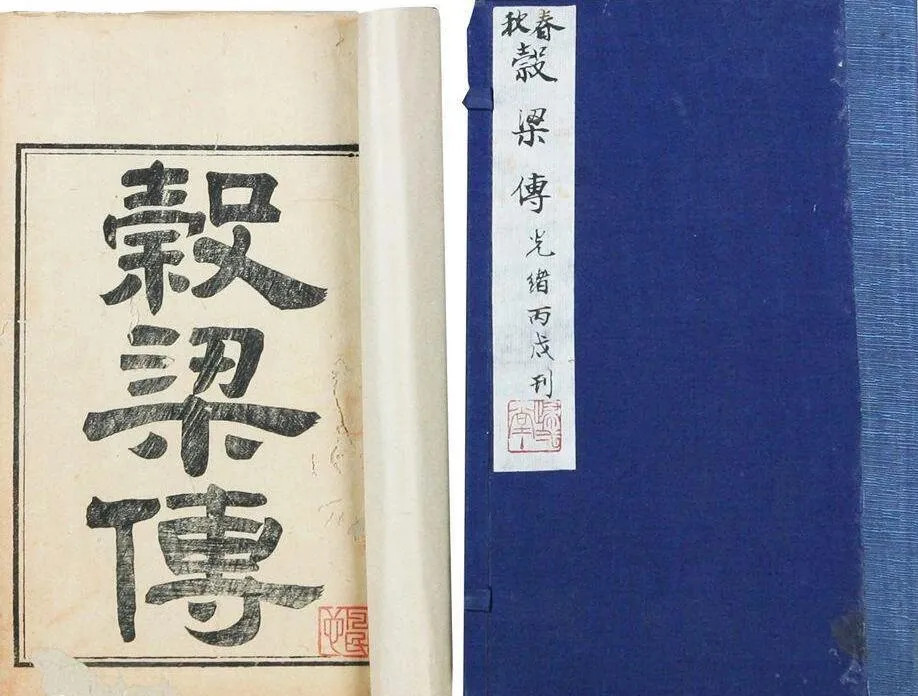 穀梁傳
春秋
穀梁傳光緒丙戌刊